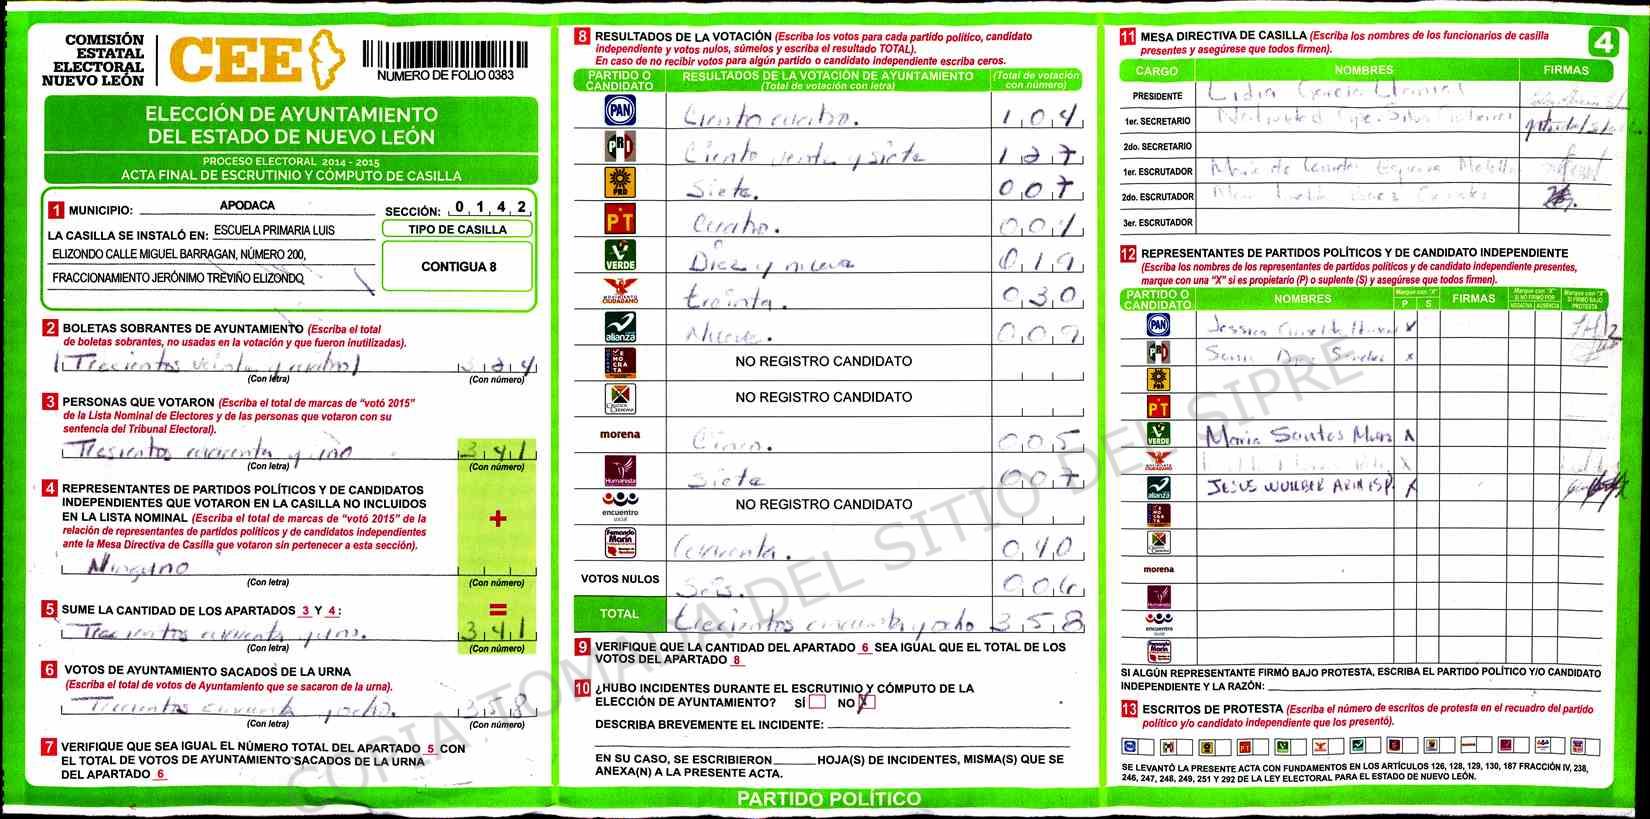 COMISIÓN
ESTATAL
ELECTORAL
NUEVO LEÓN
CEE
NUMERO DE FOLIO 0383
ELECCIÓN DE AYUNTAMIENTO
DEL ESTADO DE NUEVO LEÓN
PROCESO ELECTORAL 2014 - 2015
ACTA FINAL DE ESCRUTINIO Y CÓMPUTO DE CASILLA
1 MUNICIPIO: APODACA
SECCIÓN: 0 1 4 2
LA CASILLA SE INSTALÓ EN: ESCUELA PRIMARIA LUIS
ELIZONDO CALLE MIGUEL BARRAGAN, NÚMERO 200,
FRACCIONAMIENTO JERÓNIMO TREVIÑO ELIZONDO
TIPO DE CASILLA
CONTIGUA 8
2 BOLETAS SOBRANTES DE AYUNTAMIENTO (Escriba el total
de boletas sobrantes, no usadas en la votación y que fueron inutilizadas).
Trecientos veinte y cuatro 3 2 4
(Con letra) (Con número)
3 PERSONAS QUE VOTARON (Escriba el total de marcas de “votó 2015”
de la Lista Nominal de Electores y de las personas que votaron con su
sentencia del Tribunal Electoral).
Tresientos cuarenta y uno 3 4 1
(Con letra) (Con número)
4 REPRESENTANTES DE PARTIDOS POLÍTICOS Y DE CANDIDATOS
INDEPENDIENTES QUE VOTARON EN LA CASILLA NO INCLUIDOS
EN LA LISTA NOMINAL (Escriba el total de marcas de “votó 2015” de la
relación de representantes de partidos políticos y de candidatos independientes
ante la Mesa Directiva de Casilla que votaron sin pertenecer a esta sección).
+
Ninguno
(Con letra) (Con número)
5 SUME LA CANTIDAD DE LOS APARTADOS 3 Y 4:
=
Trecientos cuarenta y uno. 3 4 1
(Con letra) (Con número)
6 VOTOS DE AYUNTAMIENTO SACADOS DE LA URNA
(Escriba el total de votos de Ayuntamiento que se sacaron de la urna).
Trecientos cincuenta y ocho. 3 5 8
(Con letra) (Con número)
7 VERIFIQUE QUE SEA IGUAL EL NÚMERO TOTAL DEL APARTADO 5 CON
EL TOTAL DE VOTOS DE AYUNTAMIENTO SACADOS DE LA URNA
DEL APARTADO 6
8 RESULTADOS DE LA VOTACIÓN (Escriba los votos para cada partido político, candidato
independiente y votos nulos, súmelos y escriba el resultado TOTAL).
En caso de no recibir votos para algún partido o candidato independiente escriba ceros.
PARTIDO O CANDIDATO
RESULTADOS DE LA VOTACIÓN DE AYUNTAMIENTO
(Total de votación con letra)
(Total de votación con número)
PAN Ciento cuatro. 1 0 4
PRD Ciento veinte y siete 1 2 7
PRD Siete. 0 0 7
PT Cuatro. 0 0 4
VERDE Diez y nueve 0 1 9
MOVIMIENTO CIUDADANO treinta. 0 3 0
alianza Nueve. 0 0 9
DEMOCRATA NO REGISTRO CANDIDATO
Cruzada Ciudadana NO REGISTRO CANDIDATO
morena Cinco. 0 0 5
Humanista Siete 0 0 7
encuentro social NO REGISTRO CANDIDATO
Fernando Marín Cuarenta. 0 4 0
VOTOS NULOS Seis. 0 0 6
TOTAL trecientos cincuenta y ocho 3 5 8
9 VERIFIQUE QUE LA CANTIDAD DEL APARTADO 6 SEA IGUAL QUE EL TOTAL DE LOS
VOTOS DEL APARTADO 8
10 ¿HUBO INCIDENTES DURANTE EL ESCRUTINIO Y CÓMPUTO DE LA
ELECCIÓN DE AYUNTAMIENTO? SÍ NO X
DESCRIBA BREVEMENTE EL INCIDENTE:
EN SU CASO, SE ESCRIBIERON HOJA(S) DE INCIDENTES, MISMA(S) QUE SE
ANEXA(N) A LA PRESENTE ACTA.
PARTIDO POLÍTICO
4
11 MESA DIRECTIVA DE CASILLA (Escriba los nombres de los funcionarios de casilla
presentes y asegúrese que todos firmen).
CARGO NOMBRES FIRMAS
PRESIDENTE Lidia Garcia
1er. SECRETARIO Natividad
2do. SECRETARIO
1er. ESCRUTADOR Maria de Lourdes Esparza
2do. ESCRUTADOR
3er. ESCRUTADOR
12 REPRESENTANTES DE PARTIDOS POLÍTICOS Y DE CANDIDATO INDEPENDIENTE
(Escriba los nombres de los representantes de partidos políticos y de candidato independiente presentes,
marque con una “X” si es propietario (P) o suplente (S) y asegúrese que todos firmen).
PARTIDO O CANDIDATO
NOMBRES
Marque con “X”
P S
FIRMAS
Marque con “X” SI NO FIRMÓ POR
NEGATIVA AUSENCIA
Marque con “X” SI FIRMÓ BAJO PROTESTA
PAN Jessica X
PRD Sonia Sanchez x
PRD
PT
VERDE Maria Santos X
MOVIMIENTO CIUDADANO X
alianza JESUS X
DEMOCRATA
morena
Humanista
encuentro social
Fernando Marín
SI ALGÚN REPRESENTANTE FIRMÓ BAJO PROTESTA, ESCRIBA EL PARTIDO POLÍTICO Y/O CANDIDATO
INDEPENDIENTE Y LA RAZÓN:
13 ESCRITOS DE PROTESTA (Escriba el número de escritos de protesta en el recuadro del partido
político y/o candidato independiente que los presentó).
SE LEVANTÓ LA PRESENTE ACTA CON FUNDAMENTOS EN LOS ARTÍCULOS 126, 128, 129, 130, 187 FRACCIÓN IV, 238,
246, 247, 248, 249, 251 Y 292 DE LA LEY ELECTORAL PARA EL ESTADO DE NUEVO LEÓN.
COPIA TOMADA DEL SITIO DEL SIPRE